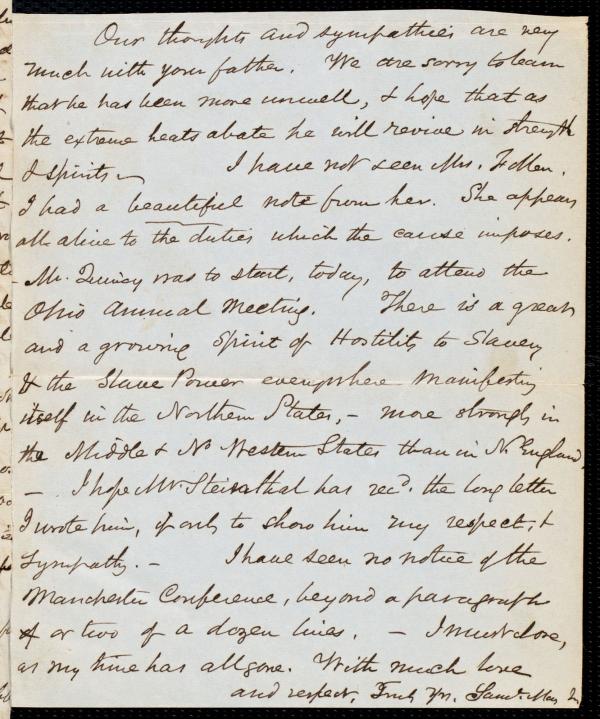 Our thoughts and sympathies are very
much with your father. We are sorry to learn
that he has been more unwell, & hope that as
the extreme heats abate he will revive in strength
& spirits — I have not seen Mrs. Follen.
I had a beautiful note from her. She appears
all alive to the duties which the cause imposes.
Mr. Quincy was to start, today, to attend the
Ohio Annual Meeting. There is a great
and a growing Spirit of Hostility to Slavery
& the Slave Power everywhere manifesting
itself in the Northern States, — more strongly in
the Middle & No Western States than in N. England,
— I hope Mr Steinthal has recd. the long letter
I wrote him, if only to show him my respect, &
sympathy. — I have seen no notice of the
Manchester Conference, beyond a paragraph
or two of a dozen lines. — I must close,
as my time has all gone. With much love
and respect, Truly Yrs. Saml. May Jr.